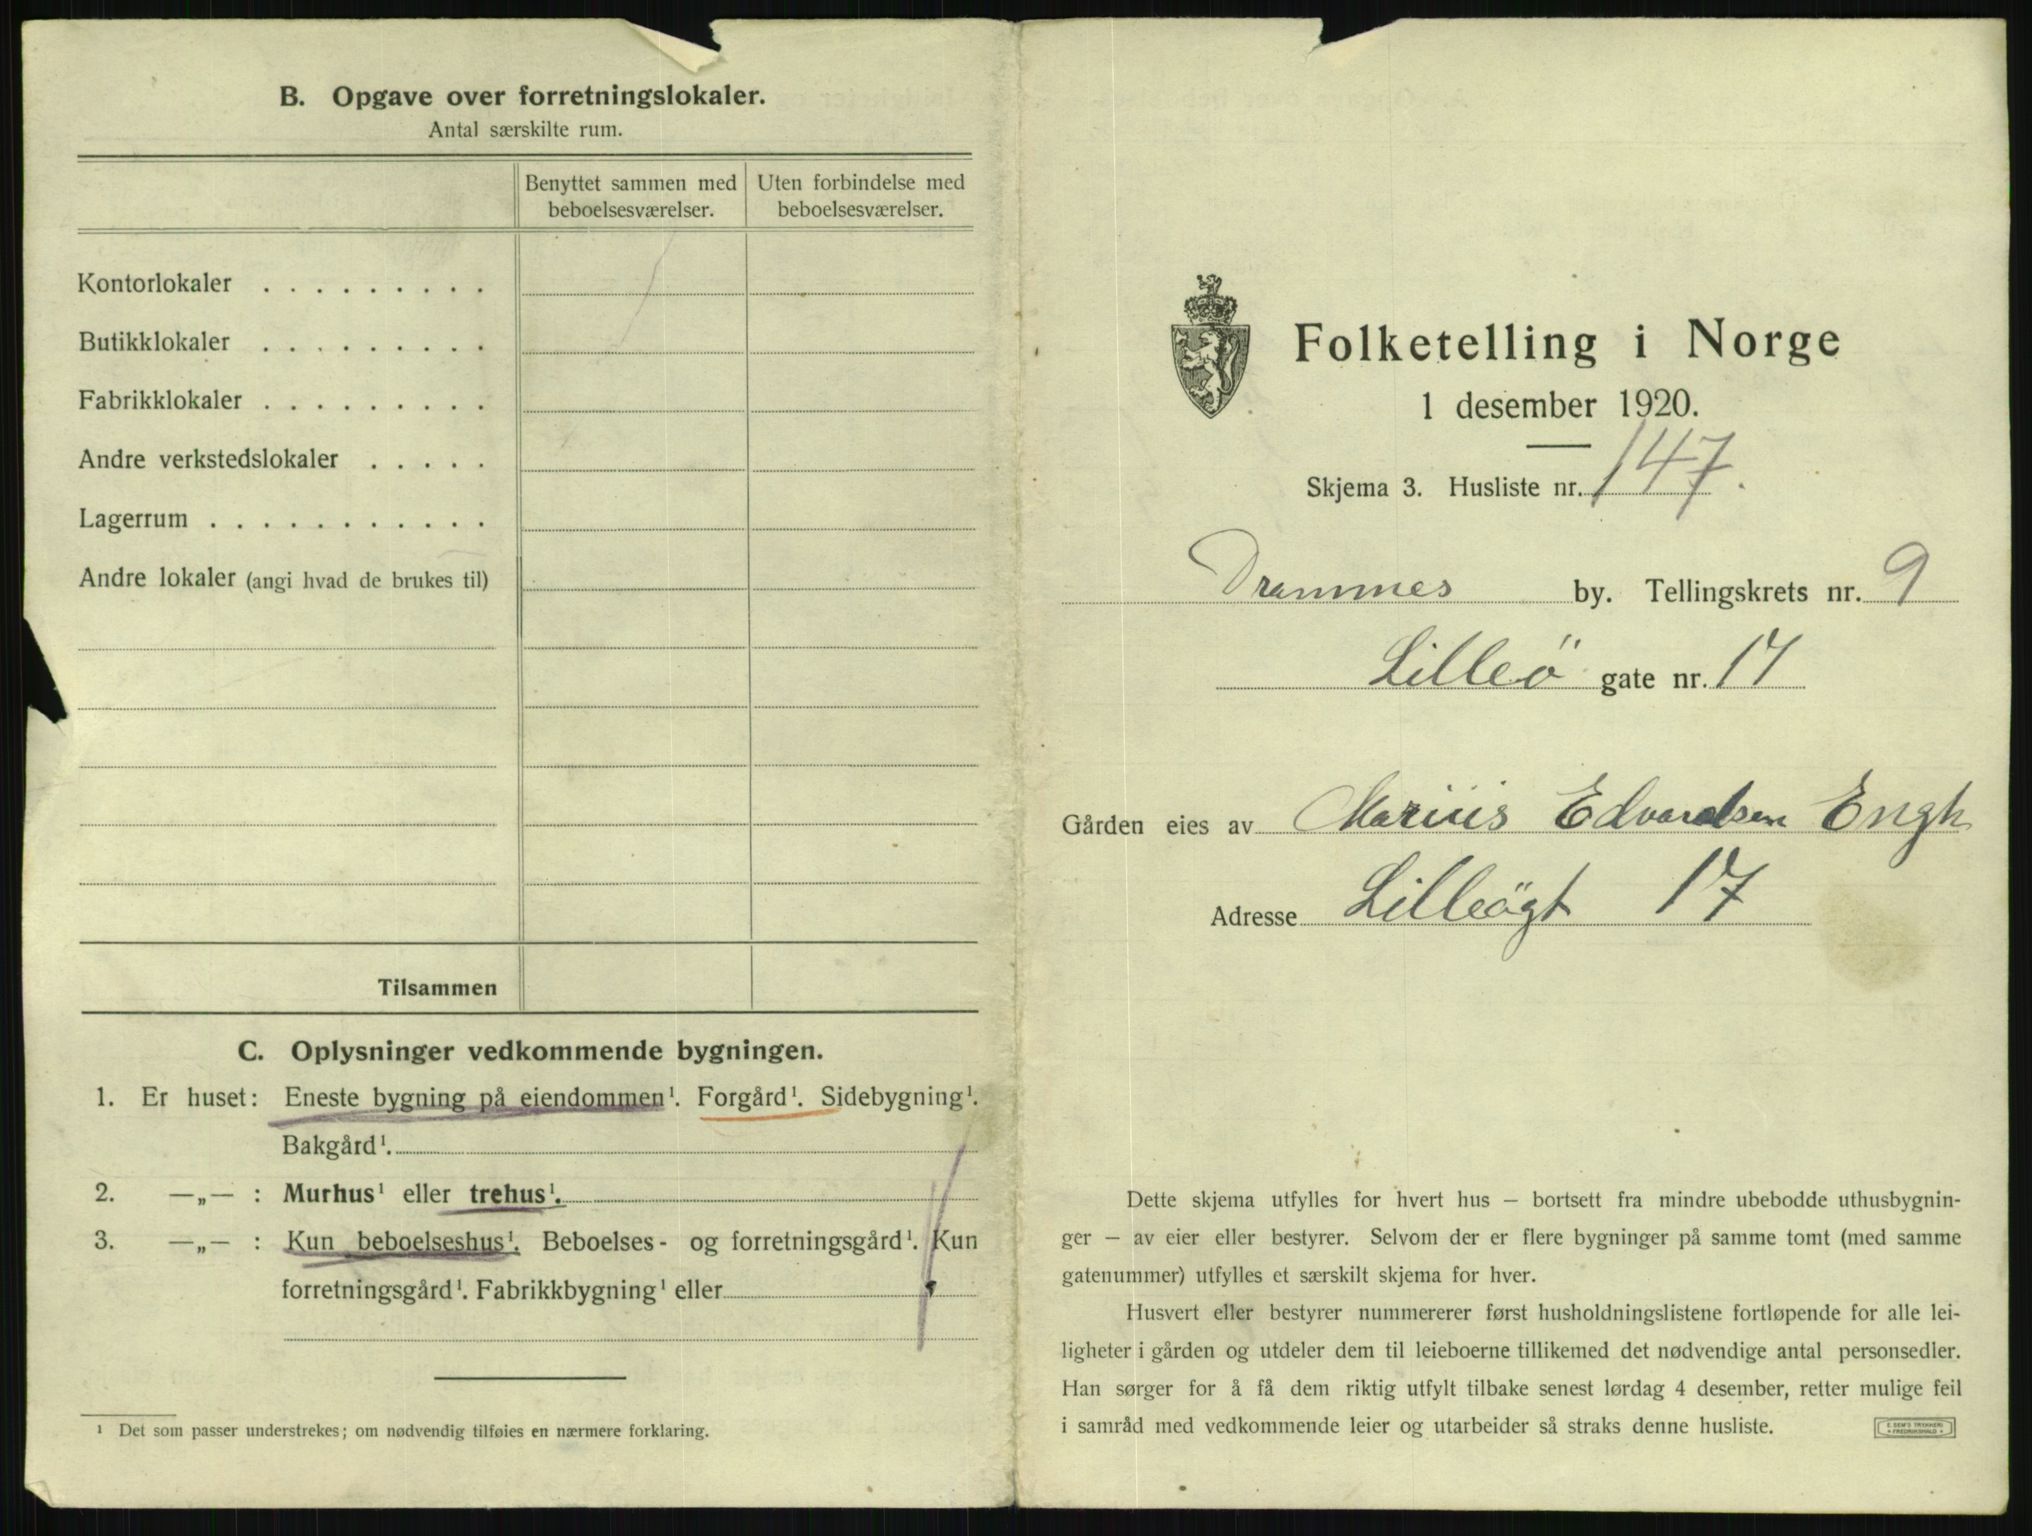 B. Opgave over forretningslokaler.
Antal særskilte rum.
Benyttet sammen med beboelsesværelser.
Uten forbindelse med beboelsesværelser.
Kontorlokaler . . . . . . . . .
Butikklokaler . . . . . . . . .
Fabrikklokaler . . . . . . . . .
Andre verkstedslokaler . . . . .
Lagerrum . . . . . . . . . . .
Andre lokaler (angi hvad de brukes til)
Tilsammen
C. Oplysninger vedkommende bygningen.
1. Er huset: Eneste bygning på eiendommen¹. Forgård¹. Sidebygning¹.
Bakgård¹.
2. —„— : Murhus¹ eller trehus¹.
3. —„— : Kun beboelseshus¹. Beboelses- og forretningsgård¹. Kun
forretningsgård¹. Fabrikkbygning¹ eller
¹ Det som passer understrekes; om nødvendig tilføies en nærmere forklaring.
Folketelling i Norge
1 desember 1920.
Skjema 3. Husliste nr. 147.
Drammes by. Tellingskrets nr. 9
Lilleö gate nr. 17
Gården eies av Marius Edvardsen Engh
Adresse Lilleögt 17
Dette skjema utfylles for hvert hus — bortsett fra mindre ubebodde uthusbygnin-
ger — av eier eller bestyrer. Selvom der er flere bygninger på samme tomt (med samme
gatenummer) utfylles et særskilt skjema for hver.
Husvert eller bestyrer nummererer først husholdningslistene fortløpende for alle lei-
ligheter i gården og utdeler dem til leieboerne tillikemed det nødvendige antal personsedler.
Han sørger for å få dem riktig utfylt tilbake senest lørdag 4 desember, retter mulige feil
i samråd med vedkommende leier og utarbeider så straks denne husliste.
E. SEM'S TRYKKERI
FREDRIKSHALD